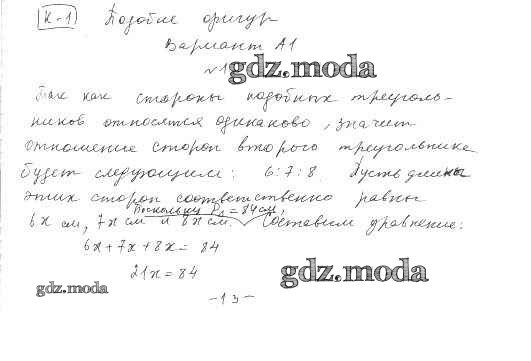 К-1 Подобие фигур
Вариант А1
№1 gdz.moda
Так как стороны подобных треуголь-
ников относятся одинаково, значит
отношение сторон второго треугольника
будет следующим: 6:7:8. Пусть длины
этих сторон соответственно равны
Поскольку P₁ = 84 см,
6x см, 7x см и 8x см. Составим уравнение:
6x + 7x + 8x = 84
21x = 84 gdz.moda
gdz.moda
- 13 -